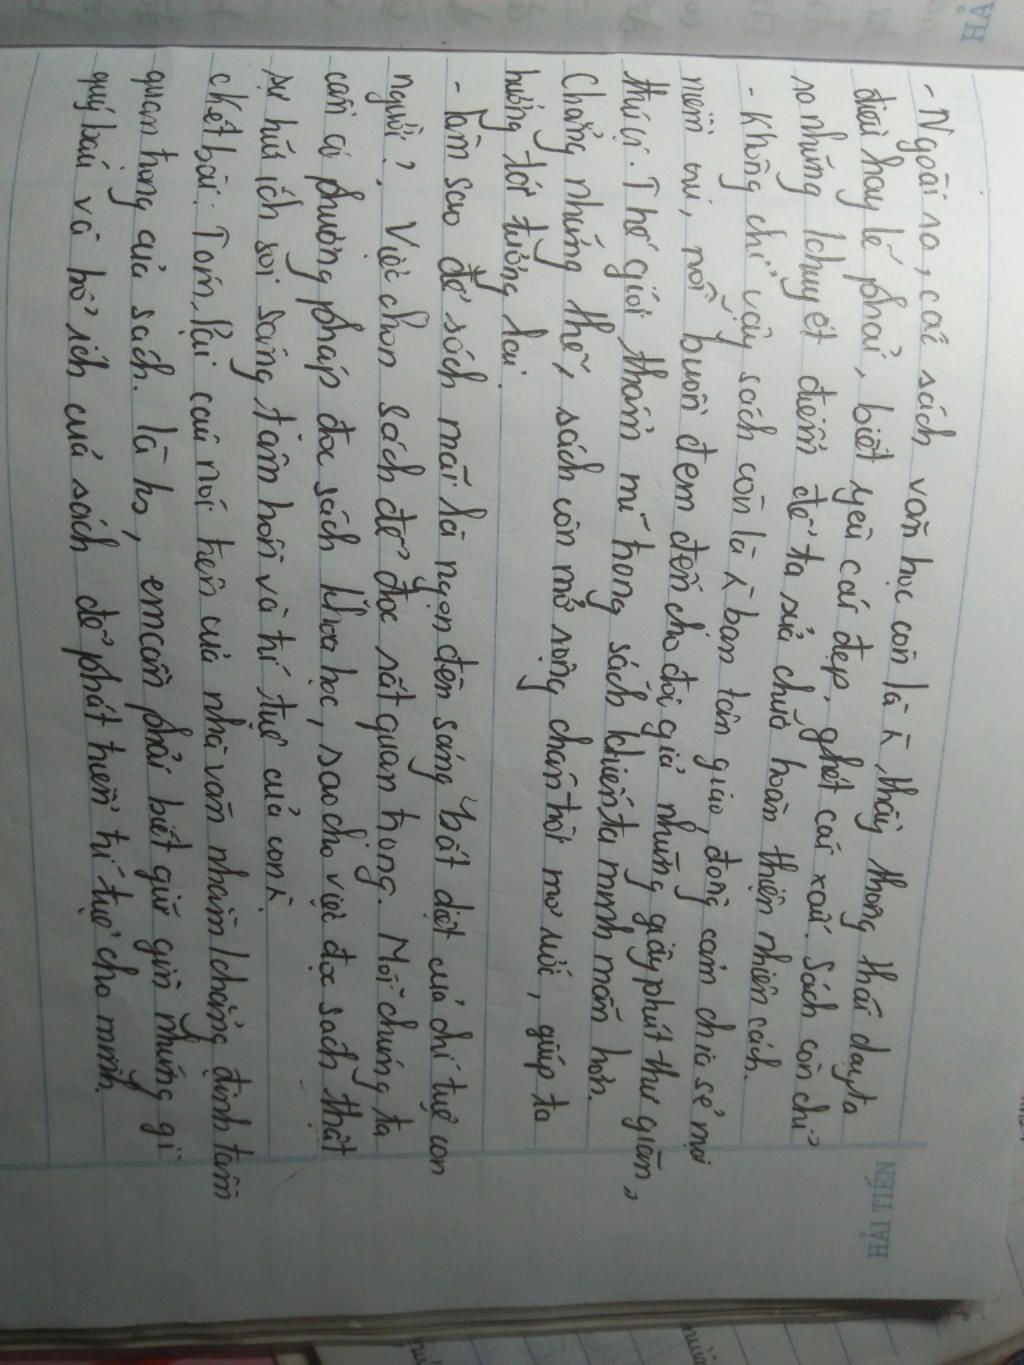 HẢ
- Ngoài ra, các sách văn học còn là 1 thầy thông thái dạy ta
điều hay lẽ phải, biết yêu cái đẹp, ghét cái xấu. Sách còn chỉ
ra những khuyết điểm để ta sửa chữa hoàn thiện nhiên cách.
- Không chỉ vậy sách còn là 1 bạn tâm giao, đồng cảm chia sẻ mọi
niềm vui, nỗi buồn đem đến cho đọi giả những giây phút thư giãn,
thú vị. Thế giới thẩm mĩ trong sách khiến ta minh mẫn hơn.
Chẳng những thế, sách còn mở rộng chân trời mơ ước, giúp ta
hướng tới tương lai.
- Làm sao để sách mãi là ngọn đèn sáng "bất diệt của chí tuệ con
người? Việc chọn sách để đọc rất quan trọng. Mỗi chúng ta
cần có phương pháp đọc sách khoa học, sao cho việc đọc sách thật
sự hữu ích soi sáng tâm hồn và trí tuệ của con 1.
c Kết bài: Tóm lại câu nói trên của nhà văn nhằm khẳng định tầm
quan trọng của sách. Là hs, em cần phải biết giữ gìn những gì
quý báu và bổ ích của sách để phát triển trí tuệ cho mình.
HẢI TIẾN